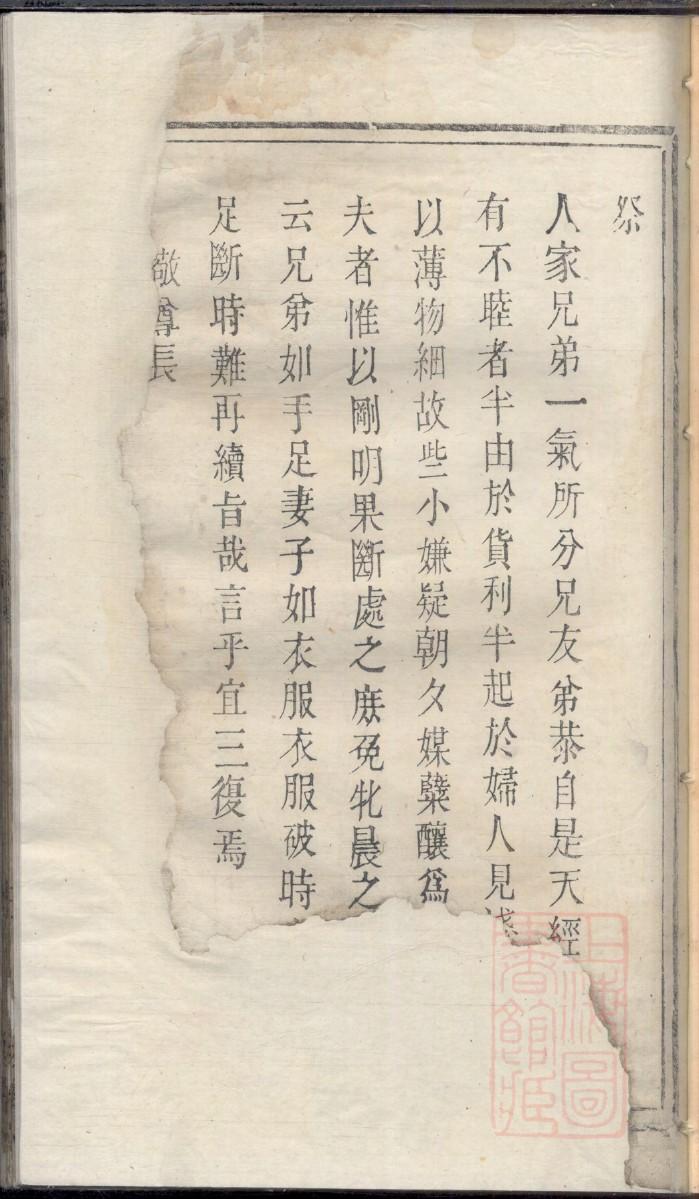 祭
人家兄弟一氣所分兄友弟恭自是天經
有不睦者半由於貨利半起於婦人見淺
以薄物細故些小嫌疑朝夕媒糱釀爲
夫者惟以剛明果斷處之庶免牝晨之
云兄弟如手足妻子如衣服衣服破時
足斷時難再續旨哉言乎宜三復焉
敬尊長
上海圖書館藏